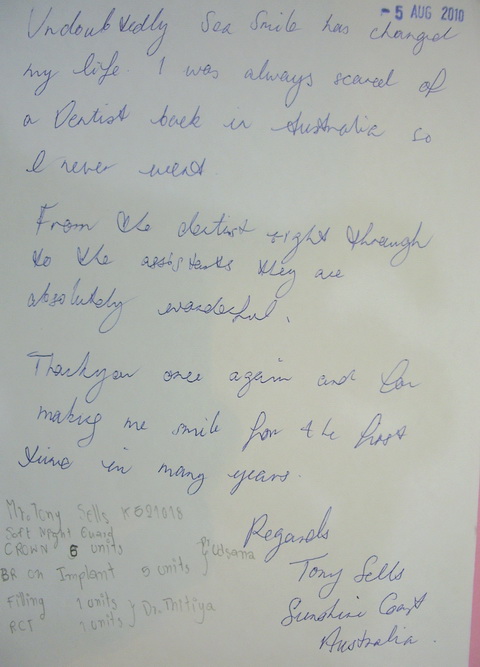 - 5 AUG 2010
Undoubtedly Sea Smile has changed
my life. I was always scared of
a Dentist back in Australia so
I never went.
From the dentist right through
to the assistants they are
absolutely wonderful.
Thankyou once again and for
making me smile for the first
time in many years.
Regards
Tony Sells
Sunshine Coast
Australia.
Mr. Tony Sells K521018
Soft Night Guard
CROWN 6 units
BR on Implant 5 units
Filling 1 units } Dr. Thitiya
RCT 1 units